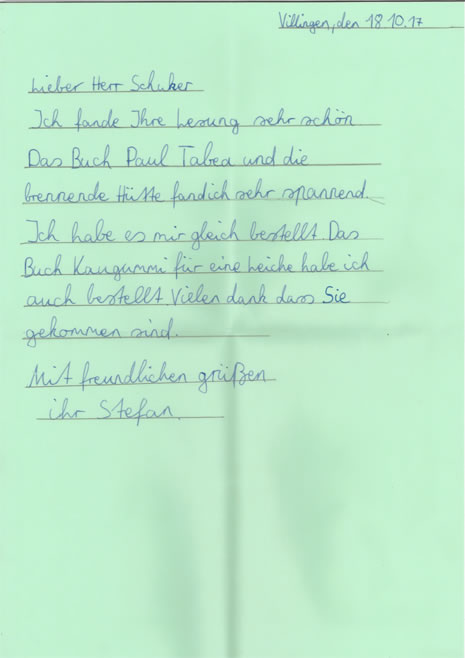 Villingen, den 18.10.17
Lieber Herr Schuker
Ich fande Ihre Lesung sehr schön
Das Buch Paul Tabea und die
brennende Hütte fandich sehr spannend.
Ich habe es mir gleich bestellt. Das
Buch Kaugummi für eine Leiche habe ich
auch bestellt. Vielen dank dass Sie
gekommen sind.
Mit freundlichen grüßen
ihr Stefan.